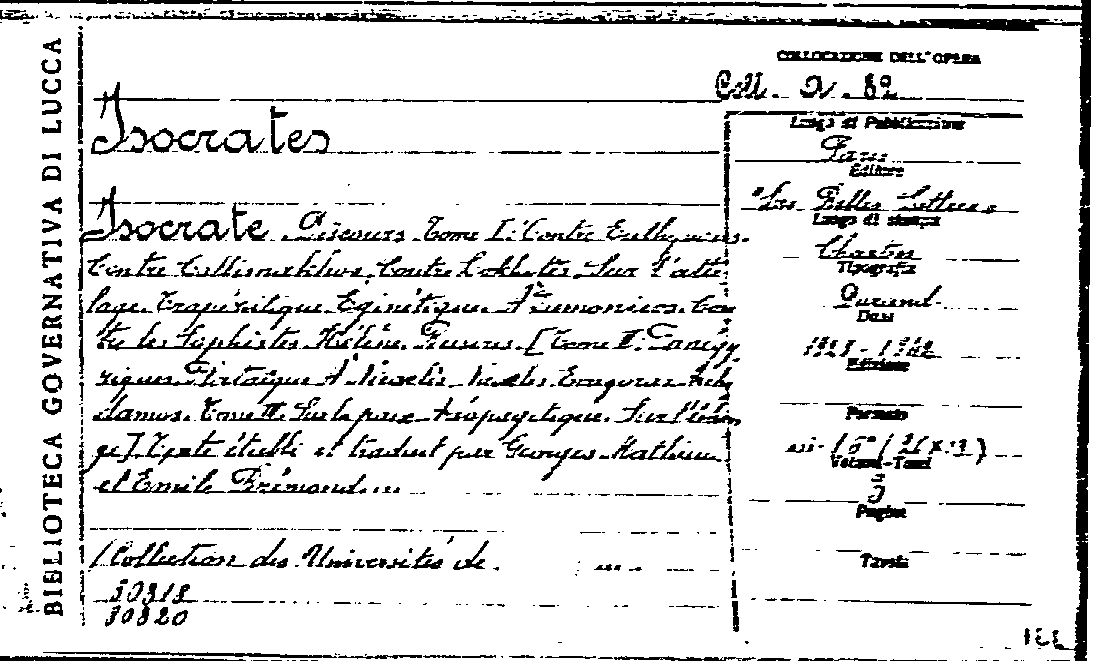 BIBLIOTECA GOVERNATIVA DI LUCCA
COLLOCAZIONE DELL'OPERA
Coll. 82
Isocrates
Luogo di Pubblicazione
Paris
Editore
"Les Belles Lettres"
Luogo di stampa
Chartres
Tipografia
Durand
Dati
Edizione
Formato
Volumi-Tomi
3
Pagine
Tavole
Isocrate Discours Tome I: Contre Euthynous.
Contre Callimakhos. Contre Lokhites. Sur l'atte
lage. Trapézitique. Eginétique. A Demonicos. Con
tre les Sophistes. Hélène. Busiris. [Tome II: Panegy
riques. A Nicoclès. Nicoclès. Evagoras. Arch
damos. Tome III. Sur la paix. Aréopagitique. Sur l'échan
ge] Texte établi et traduit par Georges Mathieu
et Emile Brémond...
(Collection des Universités de
30318
30820